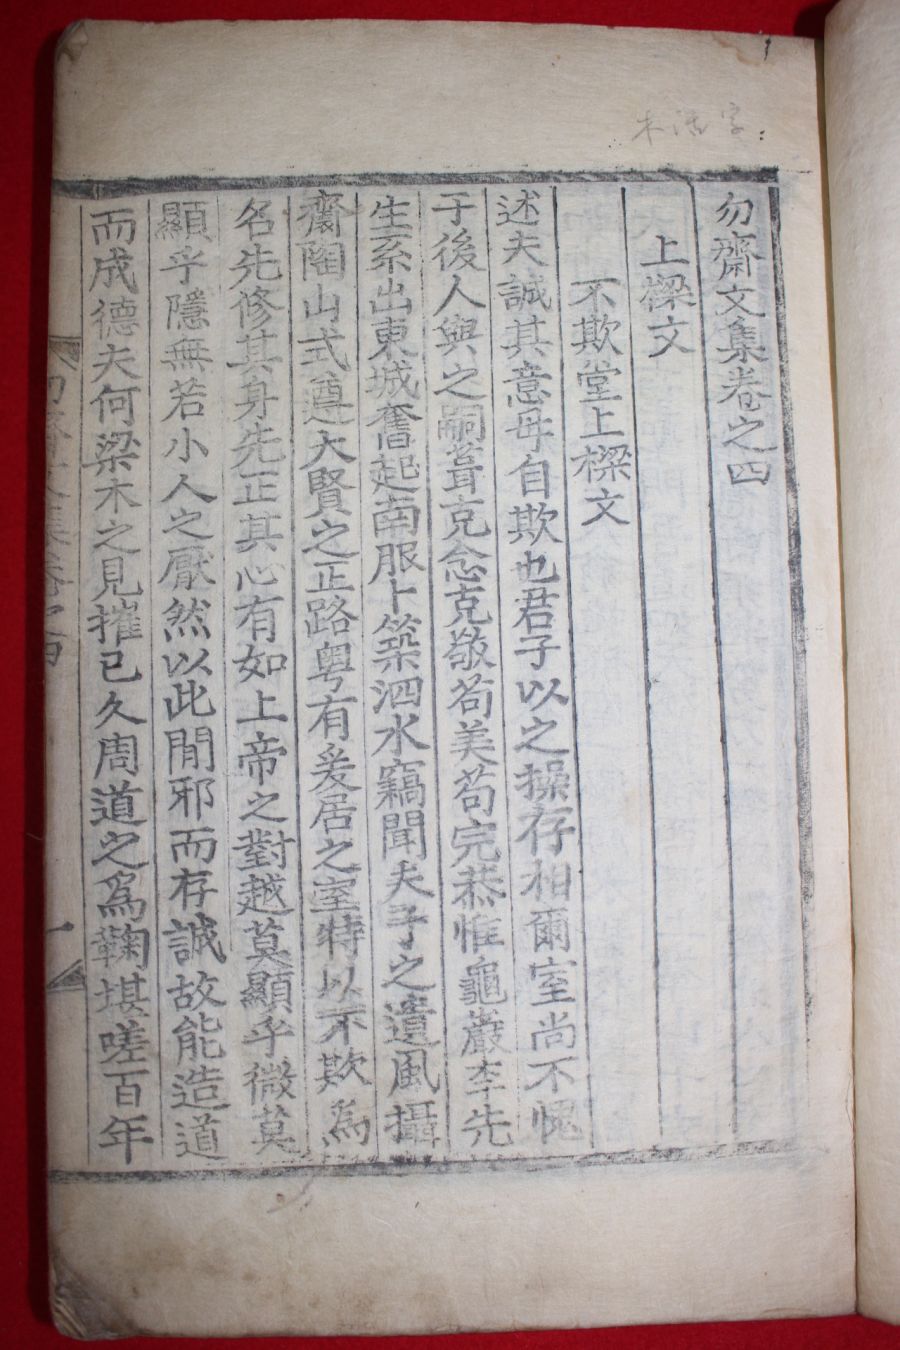 木活字
勿齋文集卷之四
上樑文
不欺堂上樑文
述夫誠其意毋自欺也君子以之操存相爾室尚不愧
于後人與之嗣葺克念克敬苟美苟完恭惟龜巖李先
生系出東城奮起南服卜築泗水竊聞夫子之遺風攝
齋陶山式遵大賢之正路粤有爰居之室特以不欺爲
名先修其身先正其心有如上帝之對越莫顯乎微莫
顯乎隱無若小人之厭然以此閒邪而存誠故能造道
而成德夫何梁木之見摧已久周道之爲鞠堪嗟百年
勿齋文集卷之四
一